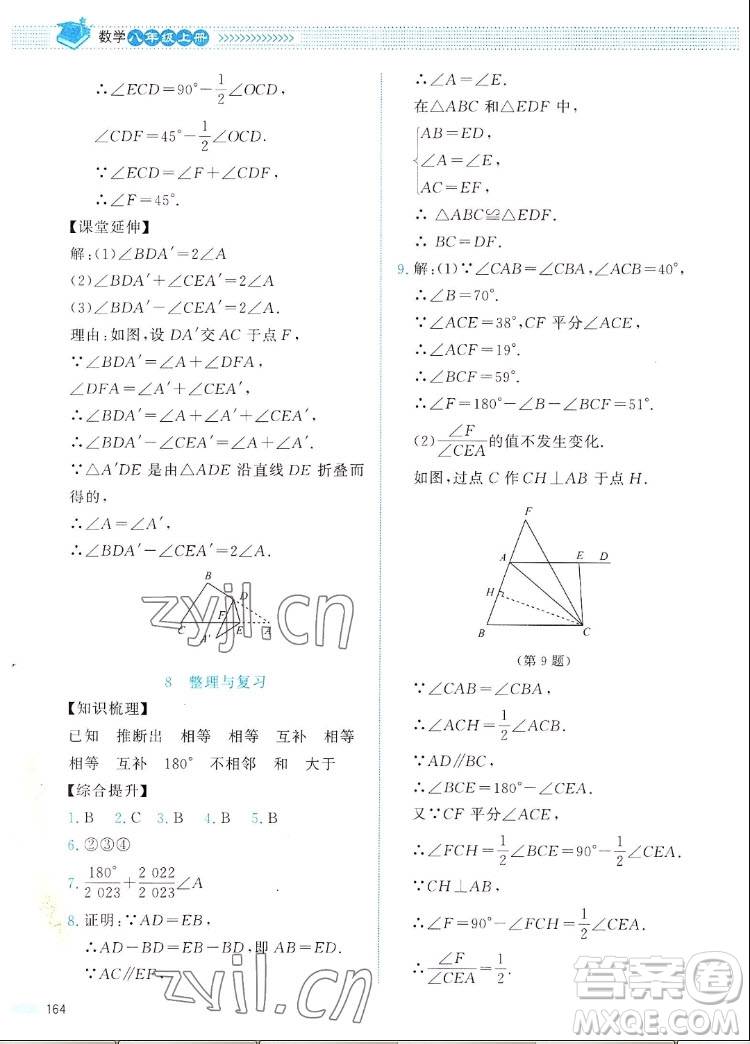 数学八年级上册
∴∠ECD=90°-1/2∠OCD,
∠CDF=45°-1/2∠OCD.
∵∠ECD=∠F+∠CDF,
∴∠F=45°.
【课堂延伸】
解:(1)∠BDA′=2∠A
(2)∠BDA′+∠CEA′=2∠A
(3)∠BDA′-∠CEA′=2∠A.
理由:如图,设DA′交AC于点F,
∵∠BDA′=∠A+∠DFA,
∠DFA=∠A′+∠CEA′,
∴∠BDA′=∠A+∠A′+∠CEA′,
∴∠BDA′-∠CEA′=∠A+∠A′.
∵△A′DE是由△ADE沿直线DE折叠而
得的,
∴∠A=∠A′,
∴∠BDA′-∠CEA′=2∠A.
B
D
F
C
A′
E
A
8 整理与复习
【知识梳理】
已知 推断出 相等 相等 互补 相等
相等 互补 180° 不相邻 和 大于
【综合提升】
1. B 2. C 3. B 4. B 5. B
6. ②③④
7. 180°/2 023+2 022/2 023∠A
8. 证明:∵AD=EB,
∴AD-BD=EB-BD,即AB=ED.
∵AC∥EF,
164
∴∠A=∠E.
在△ABC和△EDF中,
AB=ED,
∠A=∠E,
AC=EF,
∴△ABC≌△EDF.
∴BC=DF.
9. 解:(1)∵∠CAB=∠CBA,∠ACB=40°,
∴∠B=70°.
∵∠ACE=38°,CF平分∠ACE,
∴∠ACF=19°.
∴∠BCF=59°.
∴∠F=180°-∠B-∠BCF=51°.
(2)∠F/∠CEA的值不发生变化.
如图,过点C作CH⊥AB于点H.
F
A
E
D
H
B
C
(第9题)
∵∠CAB=∠CBA,
∴∠ACH=1/2∠ACB.
∵AD∥BC,
∴∠BCE=180°-∠CEA.
又∵CF平分∠ACE,
∴∠FCH=1/2∠BCE=90°-1/2∠CEA.
∵CH⊥AB,
∴∠F=90°-∠FCH=1/2∠CEA.
∴∠F/∠CEA=1/2.
zyjl.cn
zyjl.cn
答案圈
MXQE.COM